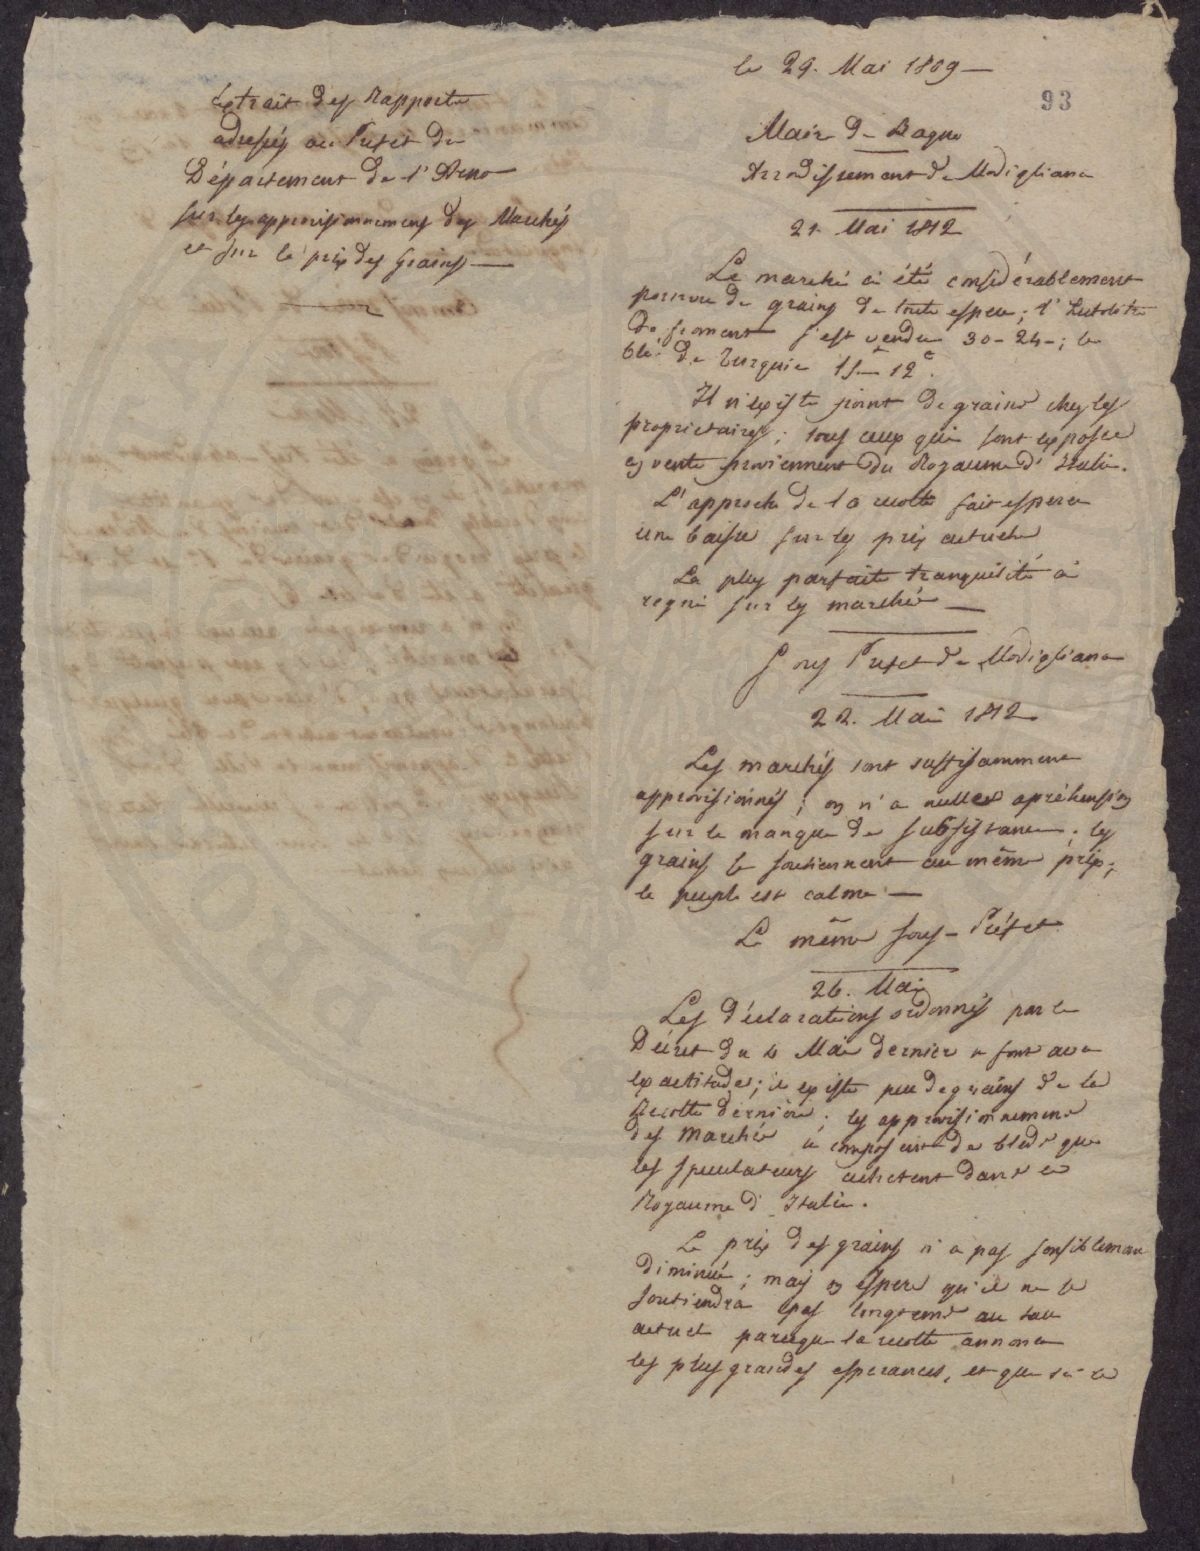 le 29. Mai 1809
93
Extrait des Rapports
adressés au Prefet du
Département de l'Arno
sur les approvisionnemens des Marchés
et sur le prix des Grains
Maire de Bagno
Arrondissement de Modigliana
21 Mai 1812
Le marché a été considérablement
pourvu de grains de toute espece; l'hectolitre
de froment s'est vendu 30-24-; le
blé de Turquie 15 12 c.
Il n'existe point de grains chez les
propriétaires; tous ceux qui sont exposés
en vente proviennent du Royaume d'Italie.
L'approche de la recolte fait esperer
une baisse sur les prix actuels
La plus parfaite tranquilité a
regné sur les marchés
Sous Prefet de Modigliana
22. Mai 1812
Les marchés sont suffisamment
approvisionnés; on n'a nulles apréhension
sur le manque de subsistance. les
grains se soutiennent au même prix;
le peuple est calme
Le même Sous-Préfet
26. Mai
Les déclarations ordonnés par le
Décret du 4 Mai dernier se font avec
exactitude; il existe peu de grains de la
Recolte derniere; les approvisionnemens
des Marchés se composent de bleds que
les spéculateurs achetent dans le
Royaume d'Italie.
Le prix des grains n'a pas sensiblement
diminué; mais on espere qu'il ne se
soutiendra pas longtems au taux
actuel parceque la recolte annonce
les plus grandes esperances, et que si le